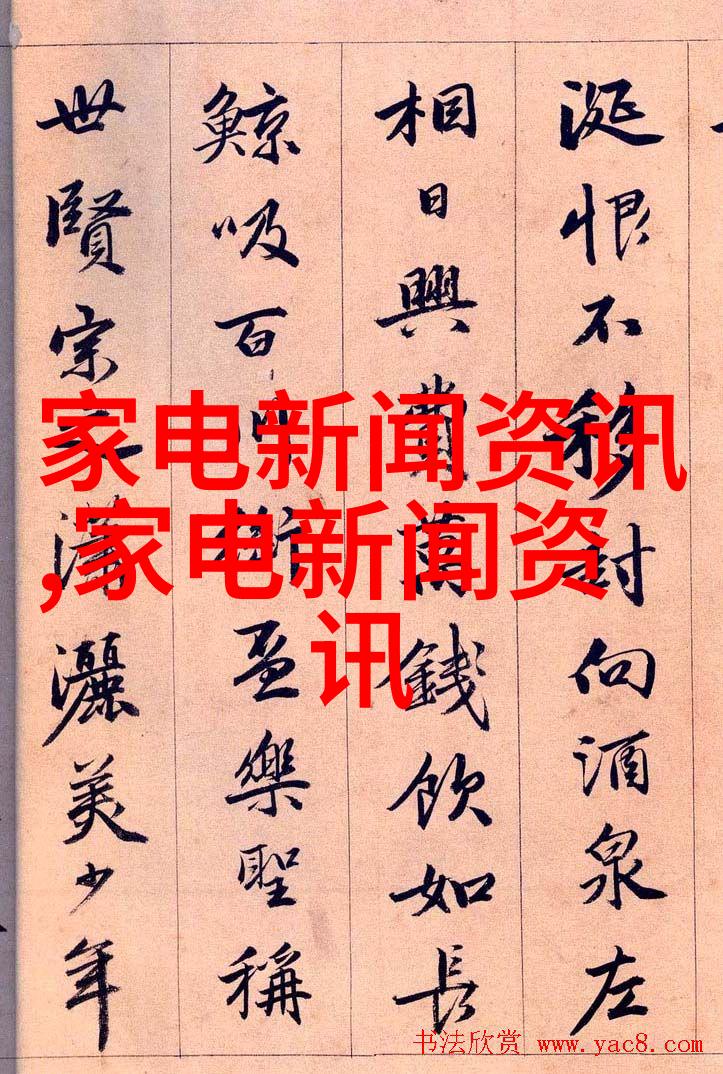 涎恨不移封向酒泉左
相日興費萬錢飲如長
鯨吸百川銜盃樂聖稱
世賢宗之瀟灑美少年
家电新闻资讯
,家电新闻资
讯
书法欣赏 www.yac8.com